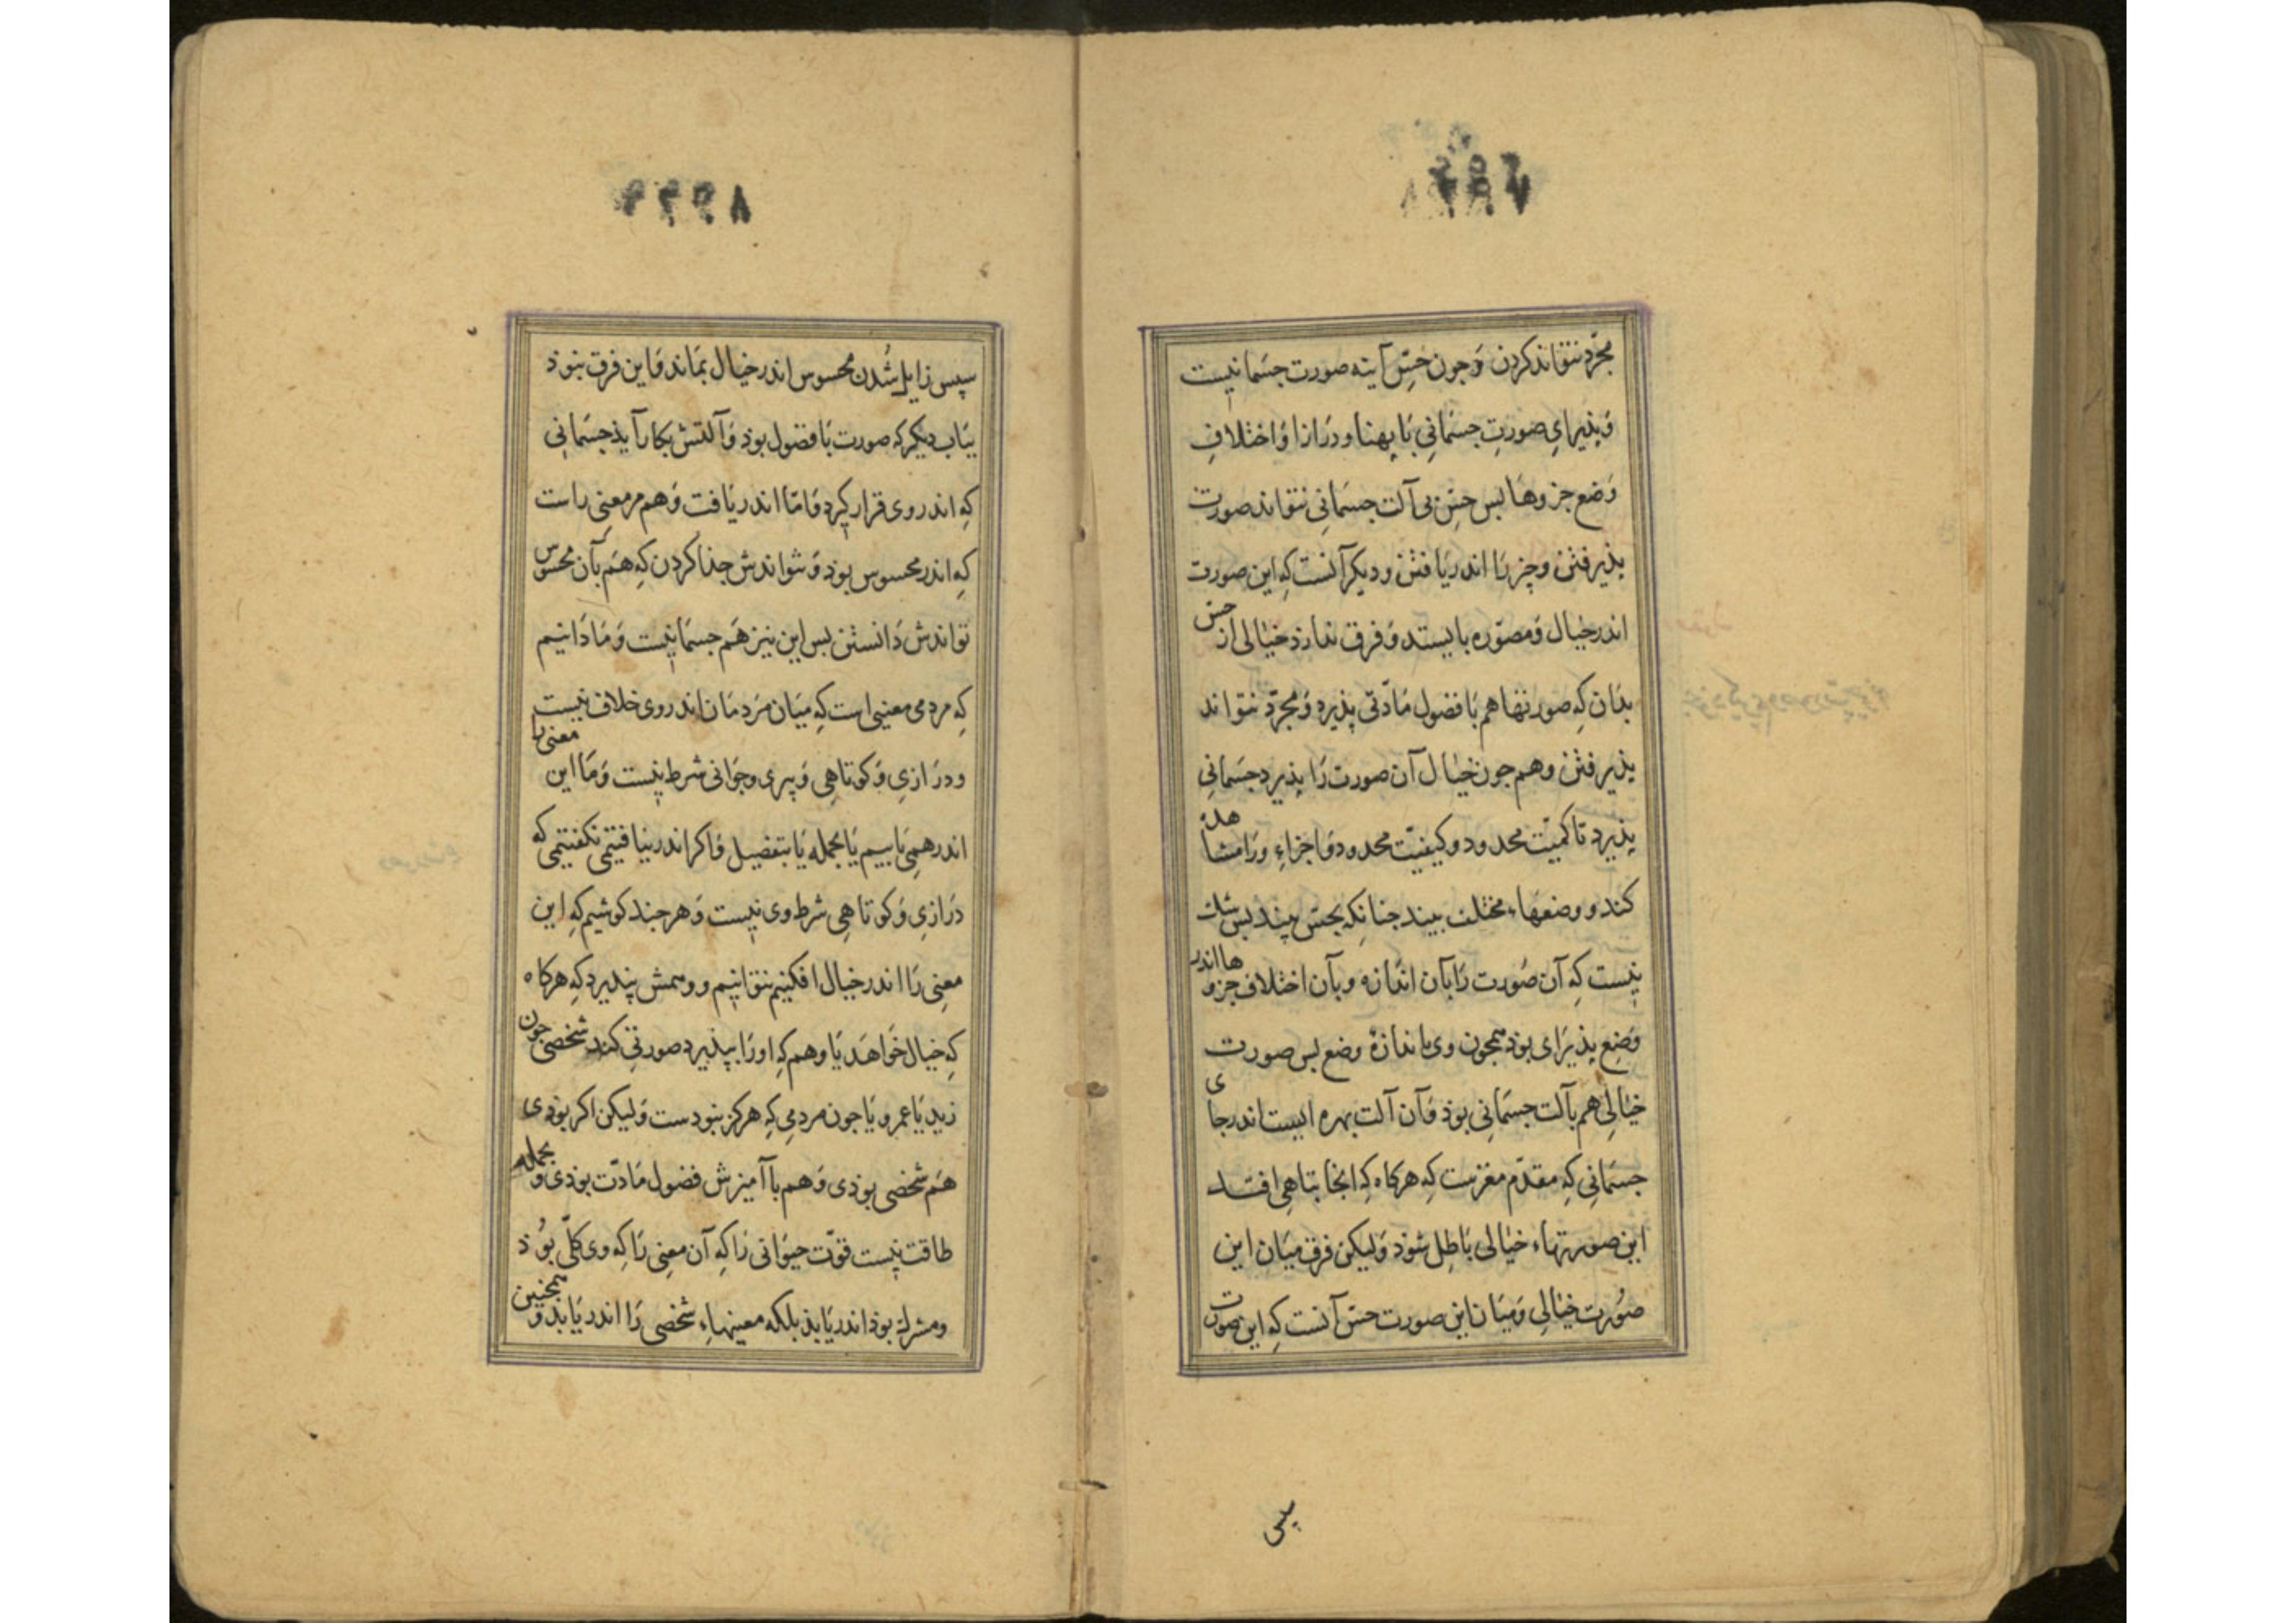 مجرّد نتواند کردن وَجون حسّ آینه صورت جسمانیست
وَپذیرایِ صورتِ جسمَانیِ بَا پهنا و درَازا وَاختلافِ
وَضع جزوهَا بس حسّ بی آلت جسمَانیِ نتواند صورت
پذیرفتن وچیز رَا اندریَافتن ودیکر آنست کِه این صورت
اندرخیال وَمصوّره بایستد وَفرق ندارد خیَالی از حسّ
بدَان کِه صورتها هم بَا فضول مَادّتی پذیرد وَمجرّد نتواند
پذیرفتن وهم جون خیَال آن صورت رَا پذیرد جسمَانیِ
پذیرد تا کمیّت محدود وکیفیّت محدود وَاجزاءِ ورَا مشاهده
کند و وضعهَاء مختلف بیند جنانکِه بحسّ بیند بس شک
نیست کِه آن صُورت رَا بآن اندَازه وبآن اختلاف جزوها اندر
وَضع پذیرَای بوذ همجون وی باندازهٔ وضع بس صورت
خیَالیِ هم بآلت جسمَانی بوذ وَآن آلت بهره ایست اندر جای
جسمَانیِ کِه مقدّم مغزست کِه هرکاه کِه انجا تباهیِ افتد
این صورتهاء خیَالی بَاطل شوذ وَلیکن فرق میَان این
صُورت خیَالیِ وَمیَان این صورت حسّ آنست کِه این صورت
سپس
سپس زایل شُدن محسوس اندر خیال بمَاند وَاین فرق نبوذ
بیَاب دیکر کِه صورت بَا فضول بوذ وَآلتش بکار آیذ جسمَانیِ
کِه اندر وی قرار کیرد وَامّا اندریَافت وَهم مر معنیِ راست
کِه اندر محسوس بوذ وَنتواندش جذا کردن کِه هَم بآن محسوس
تواندش دَانستن بس این نیز هَم جسمَانیست وَمَا دَانیم
کِه مردمی معنیی است کِه میَان مَردمَان اندر وی خلاف نیست
ودرَازیِ وَکوتاهیِ وَپیری وجوَانی شرط نیست وَمَا این معنی رَا
اندر همیِ یَابیم یَا بجمله یَا بتفضیل وَاکر اندر نیافتیمی نکفتیمی که
درَازیِ وَکوتاهیِ شرط وی نیست وَهرجند کوشیم کِه این
معنیِ رَا اندر خیَال افکنیم نتوانیم و وهمش نپذیرد کِه هرکاه
کِه خیال خَواهَد یَا وهم کِه اورَا بپذیرد صورتیِ کند شخصی جون
زید یَا عمرو یَا جون مردمیِ کِه هرکز نبودست وَلیکن اکر بوذی
هَم شخصی بوذی وَهم با آمیزش فضول مَادّت بوذی وَبجمله
طاقت نیست قوّت حیوَانی رَا کِه آن معنیِ رَا کِه وی کلّی بوُذ
ومشرک بوذ اندریَابذ بلکه معنیهاء شخصی رَا اندریَابد وَهمجنین